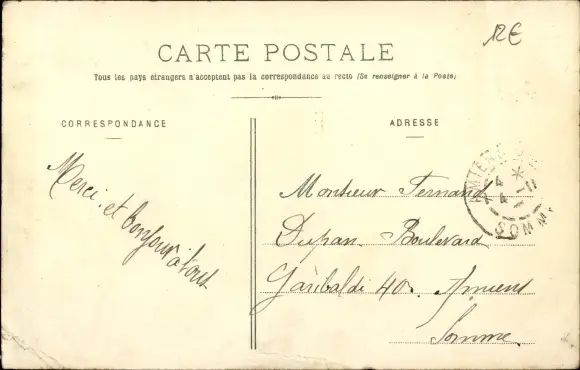 12€
CARTE POSTALE
Tous les pays étrangers n'acceptent pas la correspondance au recto (Se renseigner à la Poste)
CORRESPONDANCE
Merci et bonjour à tous
ADRESSE
Monsieur Fernand
Dupan. Boulevard
Garibaldi 40. Amiens
Somme
AMIENS
SOMME